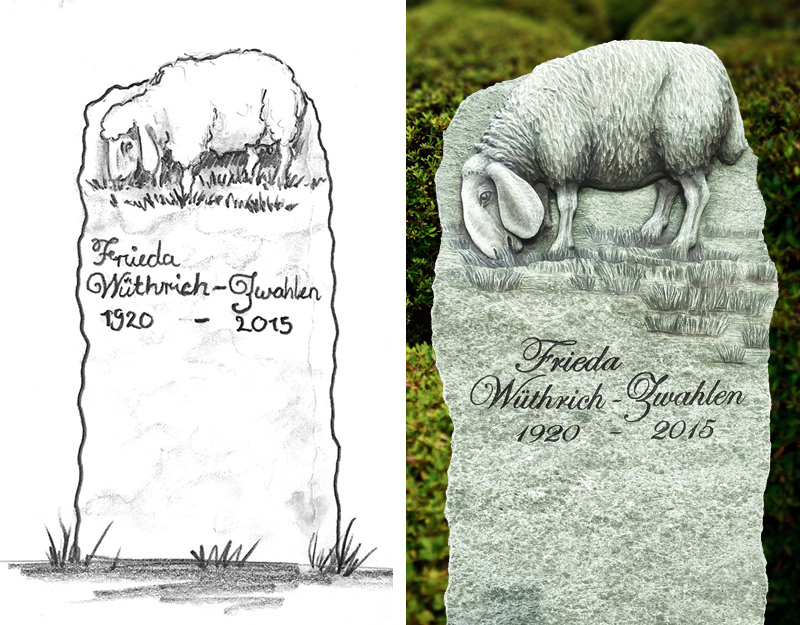 Frieda
Wüthrich - Zwahlen
1920 - 2015
Frieda
Wüthrich - Zwahlen
1920 - 2015